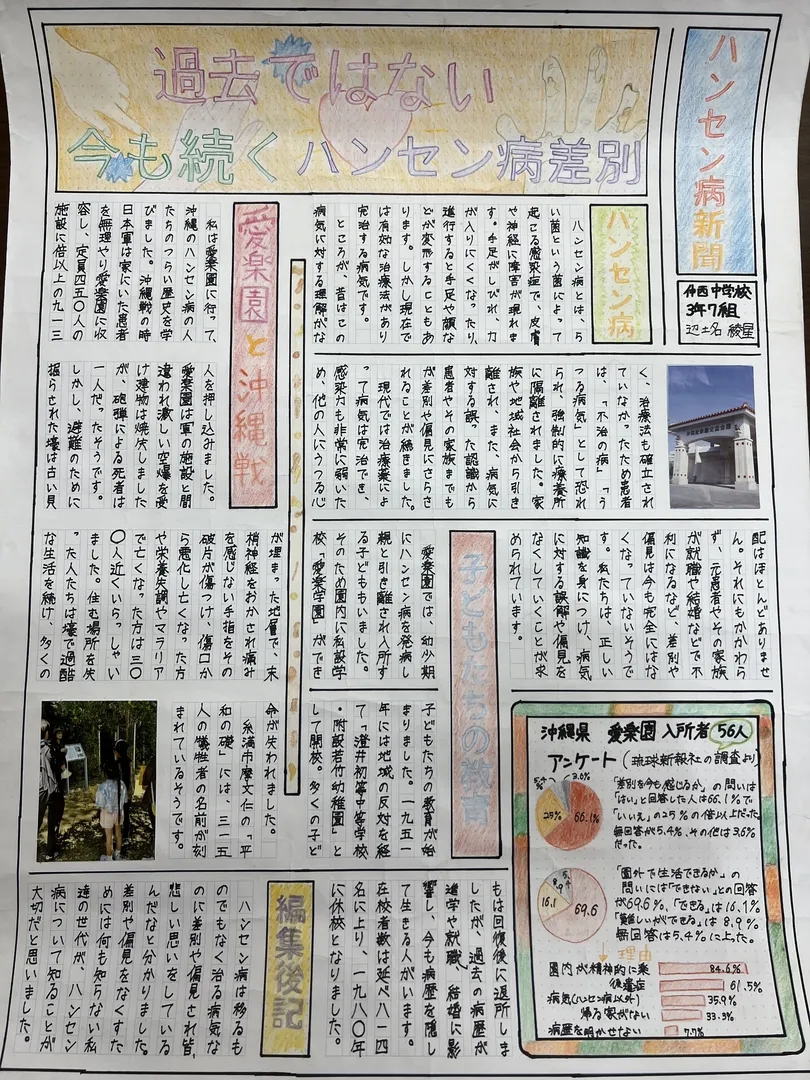 ハンセン病新聞
仲西中学校
3年7組
辺土名 綾星
過去ではない
今も続くハンセン病差別
ハンセン病
ハンセン病とは、ら
い菌という菌によって
起こる感染症で、皮膚
や神経に障害が現れま
す。手足がしびれ、力
が入りにくくなったり、
進行すると手足や顔な
どが変形することもあ
ります。しかし現在で
は有効な治療法があり
完治する病気です。
ところが、昔はこの
病気に対する理解がな
く、治療法も確立され
ていなかったため患者
は、「不治の病」「う
つる病気」として恐れ
られ、強制的に療養所
に隔離されました。家
族や地域社会から引き
離され、また、病気に
対する誤った認識から
患者やその家族までも
が差別や偏見にさらさ
れることが続きました。
現代では治療薬によ
って病気は完治でき、
感染力も非常に弱いた
め、他の人にうつる心
配はほとんどありませ
ん。それにもかかわら
ず、元患者やその家族
が就職や結婚などで不
利になるなど、差別や
偏見は今も完全にはな
くなっていないそうで
す。私たちは、正しい
知識を身につけ、病気
に対する誤解や偏見を
なくしていくことが求
められています。
愛楽園と沖縄戦
私は愛楽園に行って、
沖縄のハンセン病の人
たちのつらい歴史を学
びました。沖縄戦の時
日本軍は家にいた患者
を無理やり愛楽園に収
容し、定員四五〇人の
施設に倍以上の九一三
人を押し込みました。
愛楽園は軍の施設と間
違われ激しい空爆を受
け建物は焼失しました
が、砲弾による死者は
一人だったそうです。
しかし、避難のために
掘らされた壕は古い貝
が埋まった地層で、末
梢神経をおかされ痛み
を感じない手指をその
破片が傷つけ、傷口か
ら悪化し亡くなった方
や栄養失調やマラリア
で亡くなった方は三〇
〇人近くいらっしゃい
ました。住む場所を失
った人たちは壕で過酷
な生活を続け、多くの
命が失われました。
糸満市摩文仁の「平
和の礎」には、三一五
人の犠牲者の名前が刻
まれているそうです。
子どもたちの教育
愛楽園では、幼少期
にハンセン病を発病し
親と引き離され入所す
る子どももいました。
そのため園内に私設学
校「愛楽学園」ができ
子どもたちの教育が始
まりました。一九五一
年には地域の反対を経
て「澄井初等中等学校
・附設若竹幼稚園」と
して開校。多くの子ど
もは回復後に退所しま
したが、過去の病歴が
進学や就職、結婚に影
響し、今も病歴を隠し
て生きる人がいます。
在校者数は延べ八一四
名に上り、一九八〇年
に休校となりました。
沖縄県 愛楽園 入所者 56人
アンケート(琉球新報社の調査より)
5.4% 3.6%
25%
66.1%
「差別を今も感じるか」の問いは
「はい」と回答した人は66.1%で
「いいえ」の25%の倍以上だった。
無回答が5.4%、その他は3.6%
だった。
5.4
8.9
16.1
69.6
「園外で生活できるか」の
問いには「できない」との回答
が69.6%、「できる」は16.1%
「難しいができる」は8.9%
無回答は5.4%に上った。
理由
園内が精神的に楽 84.6%
後遺症 61.5%
病気(ハンセン病以外) 35.9%
帰る家がない 33.3%
病歴を明かせない 7.7%
編集後記
ハンセン病は移るも
のでもなく治る病気な
のに差別や偏見され皆、
悲しい思いをしている
んだなと分かりました。
差別や偏見をなくすた
めには何も知らない私
達の世代が、ハンセン
病について知ることが
大切だと思いました。